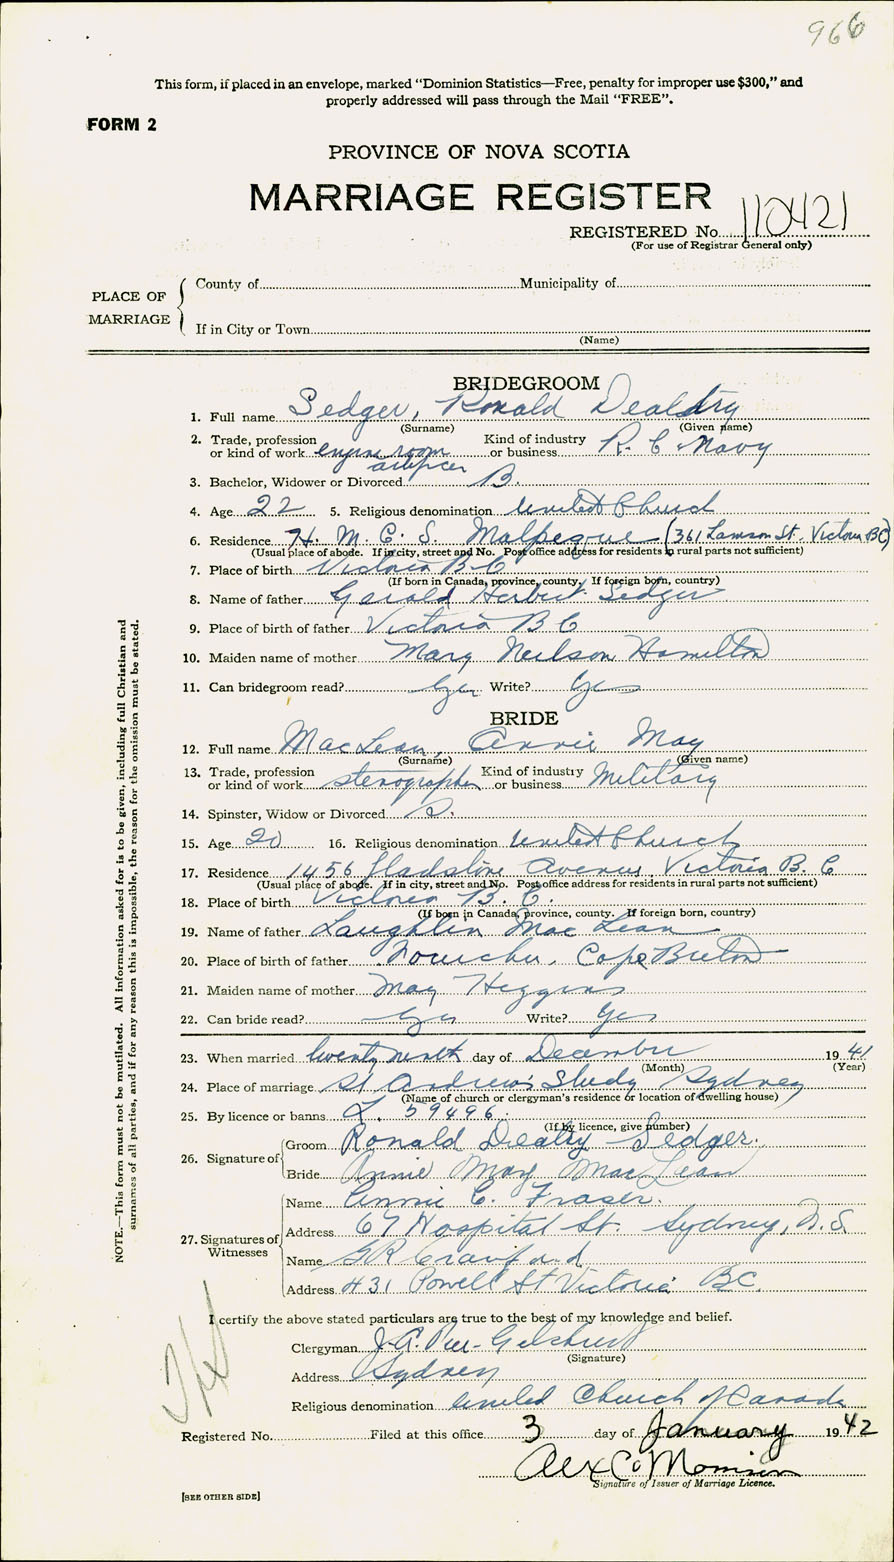 966
This form, if placed in an envelope, marked “Dominion Statistics—Free, penalty for improper use $300,” and
properly addressed will pass through the Mail “FREE”.
FORM 2
PROVINCE OF NOVA SCOTIA
MARRIAGE REGISTER
REGISTERED No. 110421
(For use of Registrar General only)
PLACE OF MARRIAGE
County of Municipality of
If in City or Town
(Name)
BRIDEGROOM
1. Full name Sedger, Ronald Dealtry
(Surname) (Given name)
2. Trade, profession or kind of work engine room artificer Kind of industry or business R. C. Navy
3. Bachelor, Widower or Divorced B.
4. Age 22 5. Religious denomination United Church
6. Residence H. M. C. S. Malpeque (361 Lamson St. Victoria BC)
(Usual place of abode. If in city, street and No. Post office address for residents in rural parts not sufficient)
7. Place of birth Victoria B C
(If born in Canada, province, county. If foreign born, country)
8. Name of father Gerald Herbert Sedger
9. Place of birth of father Victoria B C
10. Maiden name of mother Mary Neilson Hamilton
11. Can bridegroom read? Yes Write? Yes
BRIDE
12. Full name MacLean, Annie May
(Surname) (Given name)
13. Trade, profession or kind of work stenographer Kind of industry or business Military
14. Spinster, Widow or Divorced S.
15. Age 20 16. Religious denomination United Church
17. Residence 1456 Gladstone Avenue, Victoria B. C
(Usual place of abode. If in city, street and No. Post office address for residents in rural parts not sufficient)
18. Place of birth Victoria B. C.
(If born in Canada, province, county. If foreign born, country)
19. Name of father Laughlin MacLean
20. Place of birth of father Cape Breton
21. Maiden name of mother May Higgins
22. Can bride read? Yes Write? Yes
23. When married twenty ninth day of December 1941
(Month) (Year)
24. Place of marriage St Andrew's Study Sydney
(Name of church or clergyman's residence or location of dwelling house)
25. By licence or banns L. 59496.
(If by licence, give number)
26. Signature of
Groom Ronald Dealtry Sedger.
Bride Annie May MacLean
27. Signatures of Witnesses
Name Annie C. Fraser.
Address 67 Hospital St. Sydney, N.S.
Name GR Crawford
Address 431 Powell St Victoria BC.
I certify the above stated particulars are true to the best of my knowledge and belief.
Clergyman J. A. Gilchrist
(Signature)
Address Sydney
Religious denomination United Church of Canada
Registered No. Filed at this office 3 day of January 1942
Alex C. Morrison
Signature of Issuer of Marriage Licence.
[SEE OTHER SIDE]
NOTE.—This form must not be mutilated. All Information asked for is to be given, including full Christian and
surnames of all parties, and if for any reason this is impossible, the reason for the omission must be stated.